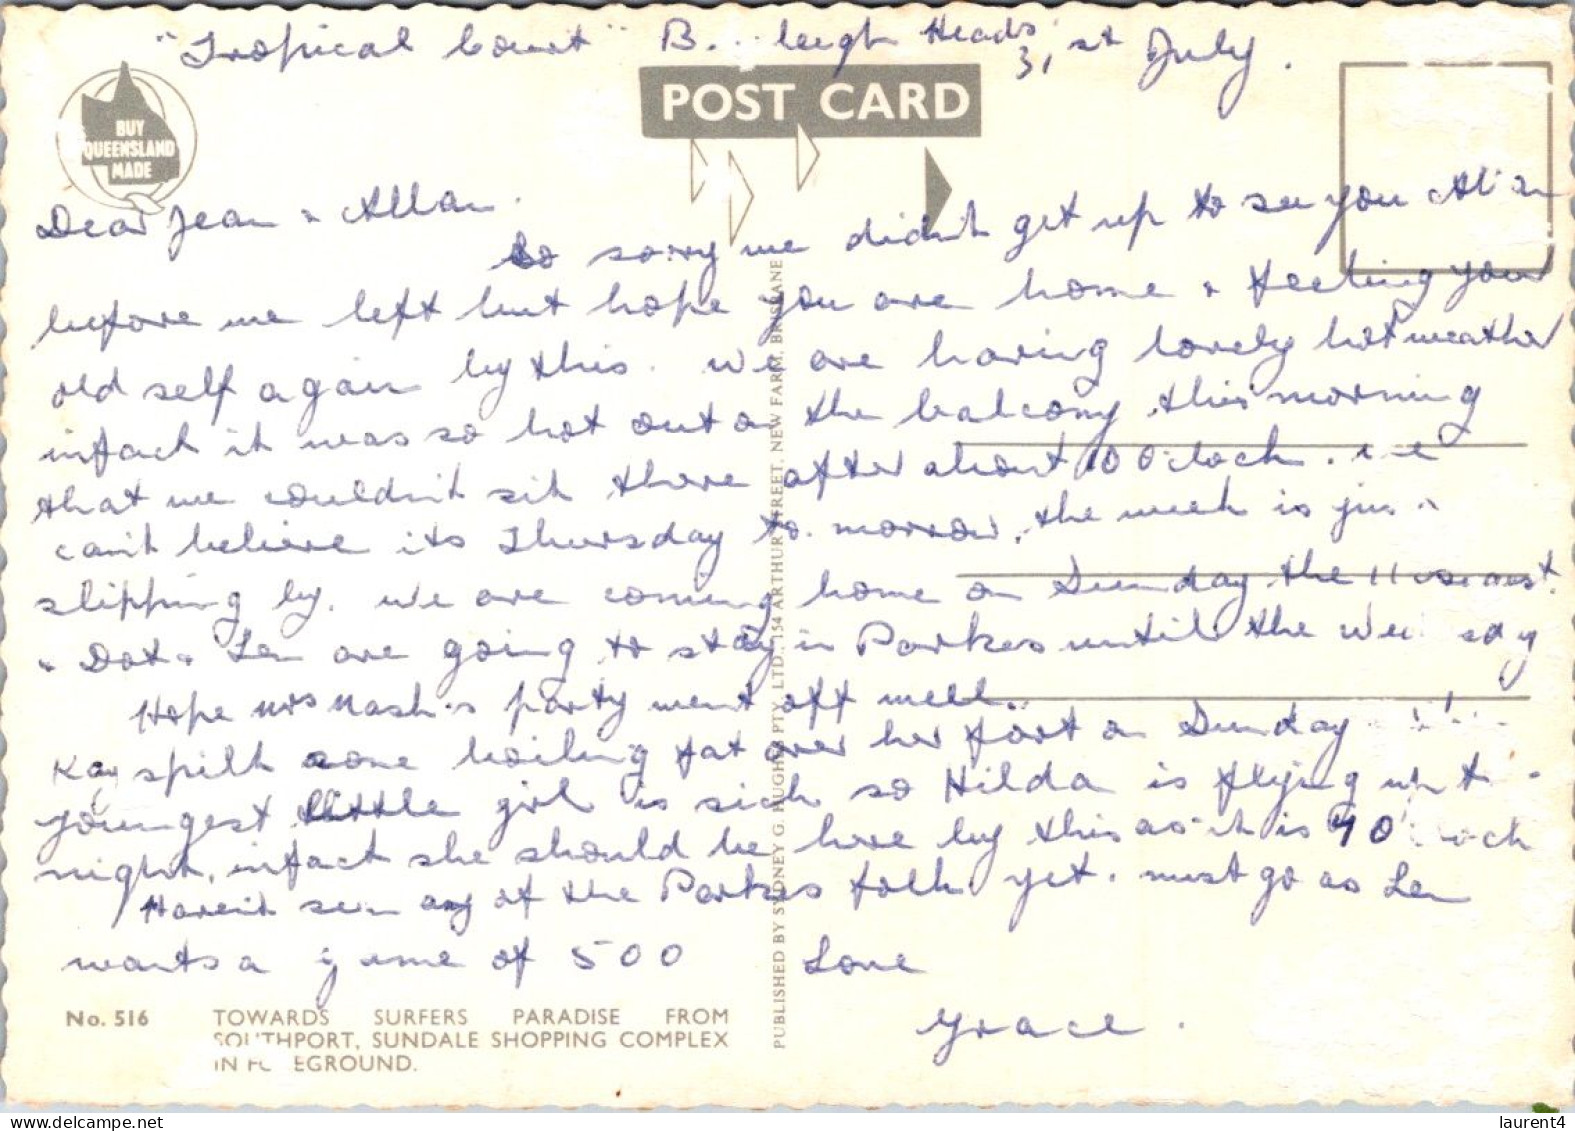 "Tropical Court" B...leigh Heads,
31st July.
POST CARD
BUY
QUEENSLAND
MADE
Dear Jean & Allan.
So sorry we didn't get up to see you Allan
before we left but hope you are home & feeling your
old self again by this. We are having lovely hot weather
infact it was so hot out on the balcony this morning
that we couldn't sit there after about 10 o'clock. We
can't believe its Thursday to-morrow, the week is jus
slipping by. We are coming home on Sunday the 11
& Dot & Len are going to stay in Parkes until the Wed
Hope Mrs Nash's party went off well..
Kay spilt some boiling fat over her foot on Sunday
youngest little girl is sick so Hilda is flying up t
night, infact she should be here by this as it is 9 O'clock
Haven't seen any of the Parkes folk yet. must go as Len
wants a game of 500 Love
Grace.
PUBLISHED BY SYDNEY G. HUGHES PTY. LTD. 154 ARTHUR STREET, NEW FARM, BRISBANE
No. 516 TOWARDS SURFERS PARADISE FROM
SOUTHPORT, SUNDALE SHOPPING COMPLEX
IN FOREGROUND.
laurent4